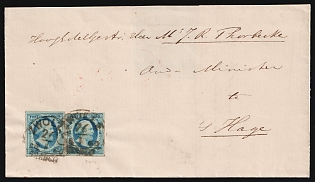 Hoog Edelgestr. den Mr. J. R. Thorbecke
Oud - Minister
te
s'Hage